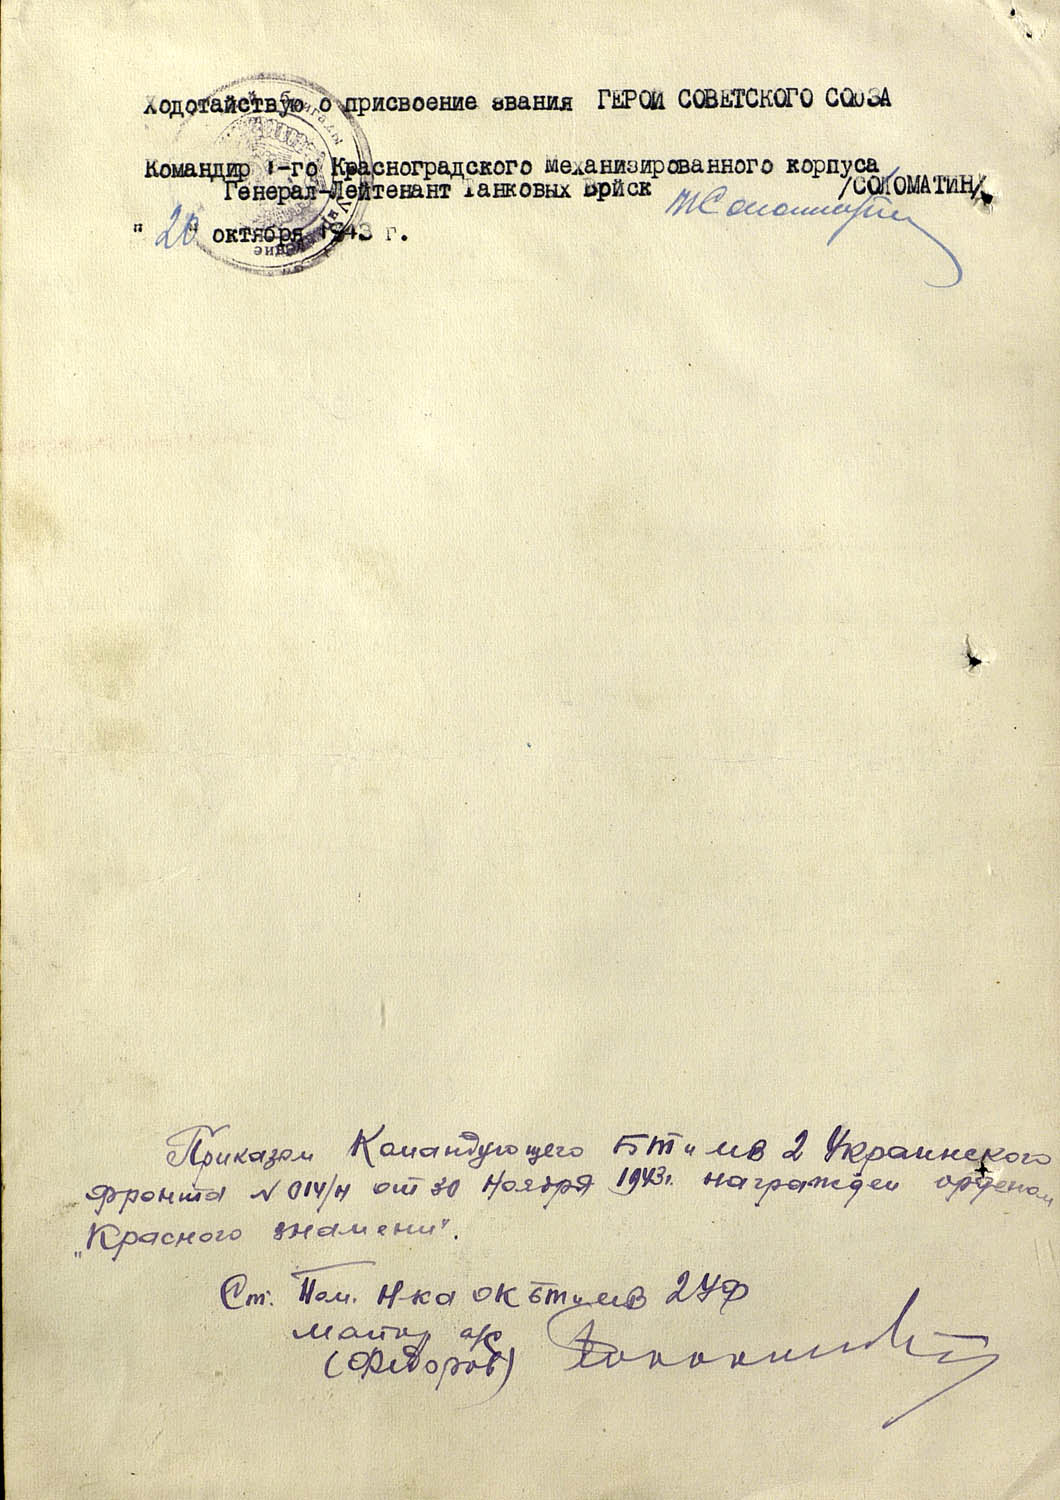 Ходотайствую о присвоение звания ГЕРОЙ СОВЕТСКОГО СОЮЗА
Командир 1-го Красноградского механизированного корпуса
Генерал-Лейтенант Танковых Войск /СОЛОМАТИН/
" 20 " октября 1943 г.
Приказом Командующего БТ и МВ 2 Украинского
фронта N 014/н от 30 ноября 1943г. награжден орденом
„Красного знамени".
Ст. Пом. Н-ка ОК БТ и МВ 2 УФ
майор а/с
(Федоров)